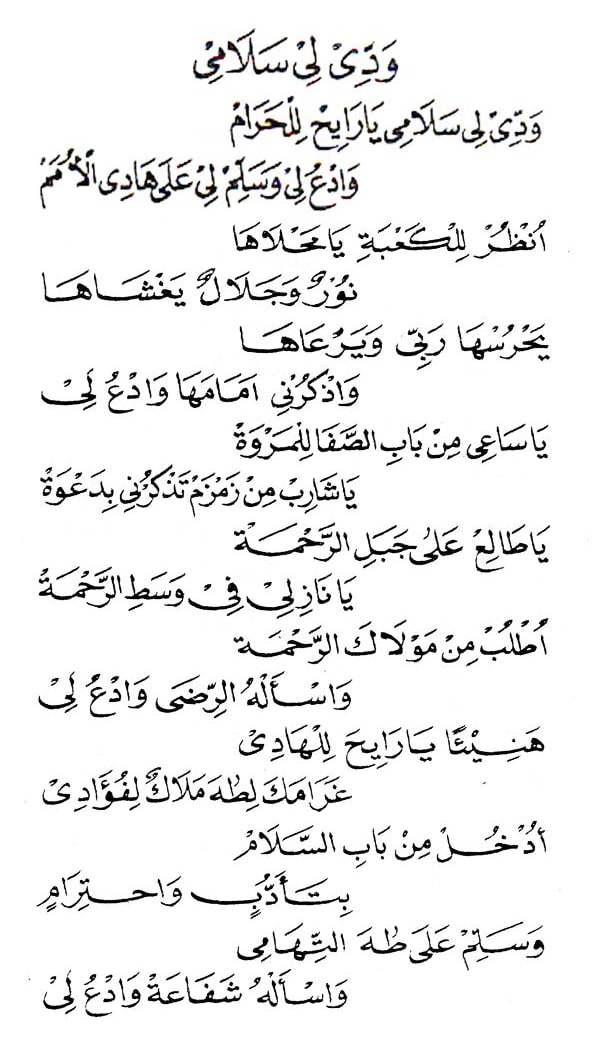 وَدِّىْ لِىْ سَلَامِىْ
وَدِّىْ لِى سَلَامِى يَارَايِحْ لِلْحَرَامْ
وَادْعُ لِىْ وَسَلِّمْ لِىْ عَلَى هَادِى الْأُمَمْ
أُنْظُرْ لِلْكَعْبَةِ يَا مَحْلَاهَا
نُوْرٌ وَجَلَالٌ يَغْشَاهَا
يَحْرُسْهَا رَبِّى وَيَرْعَاهَا
وَاذْكُرْنِي اَمَامَهَا وَادْعُ لِىْ
يَاسَاعِى مِنْ بَابِ الصَّفَا لِلْمَرْوَةْ
يَاشَارِبْ مِنْ زَمْزَمْ تَذْكُرْنِي بِدَعْوَةْ
يَاطَالِعْ عَلَى جَبَلِ الرَّحْمَةْ
يَا نَازِلِىْ فِىْ وَسَطِ الرَّحْمَةْ
اُطْلُبْ مِنْ مَوْلَاكَ الرَّحْمَة
وَاسْأَلْهُ الرِّضَى وَادْعُ لِىْ
هَنِيْئًا يَارَايِحَ لِلْهَادِىْ
غَرَامَكَ لِطٰهَ مَلَاكٌ لِفُؤَادِىْ
أُدْخُلْ مِنْ بَابِ السَّلَامْ
بِتَأَدُّبٍ وَاحْتِرَامٍ
وَسَلِّمْ عَلَى طٰهَ التِّهَامِى
وَاسْأَلْهُ شَفَاعَةْ وَادْعُ لِىْ